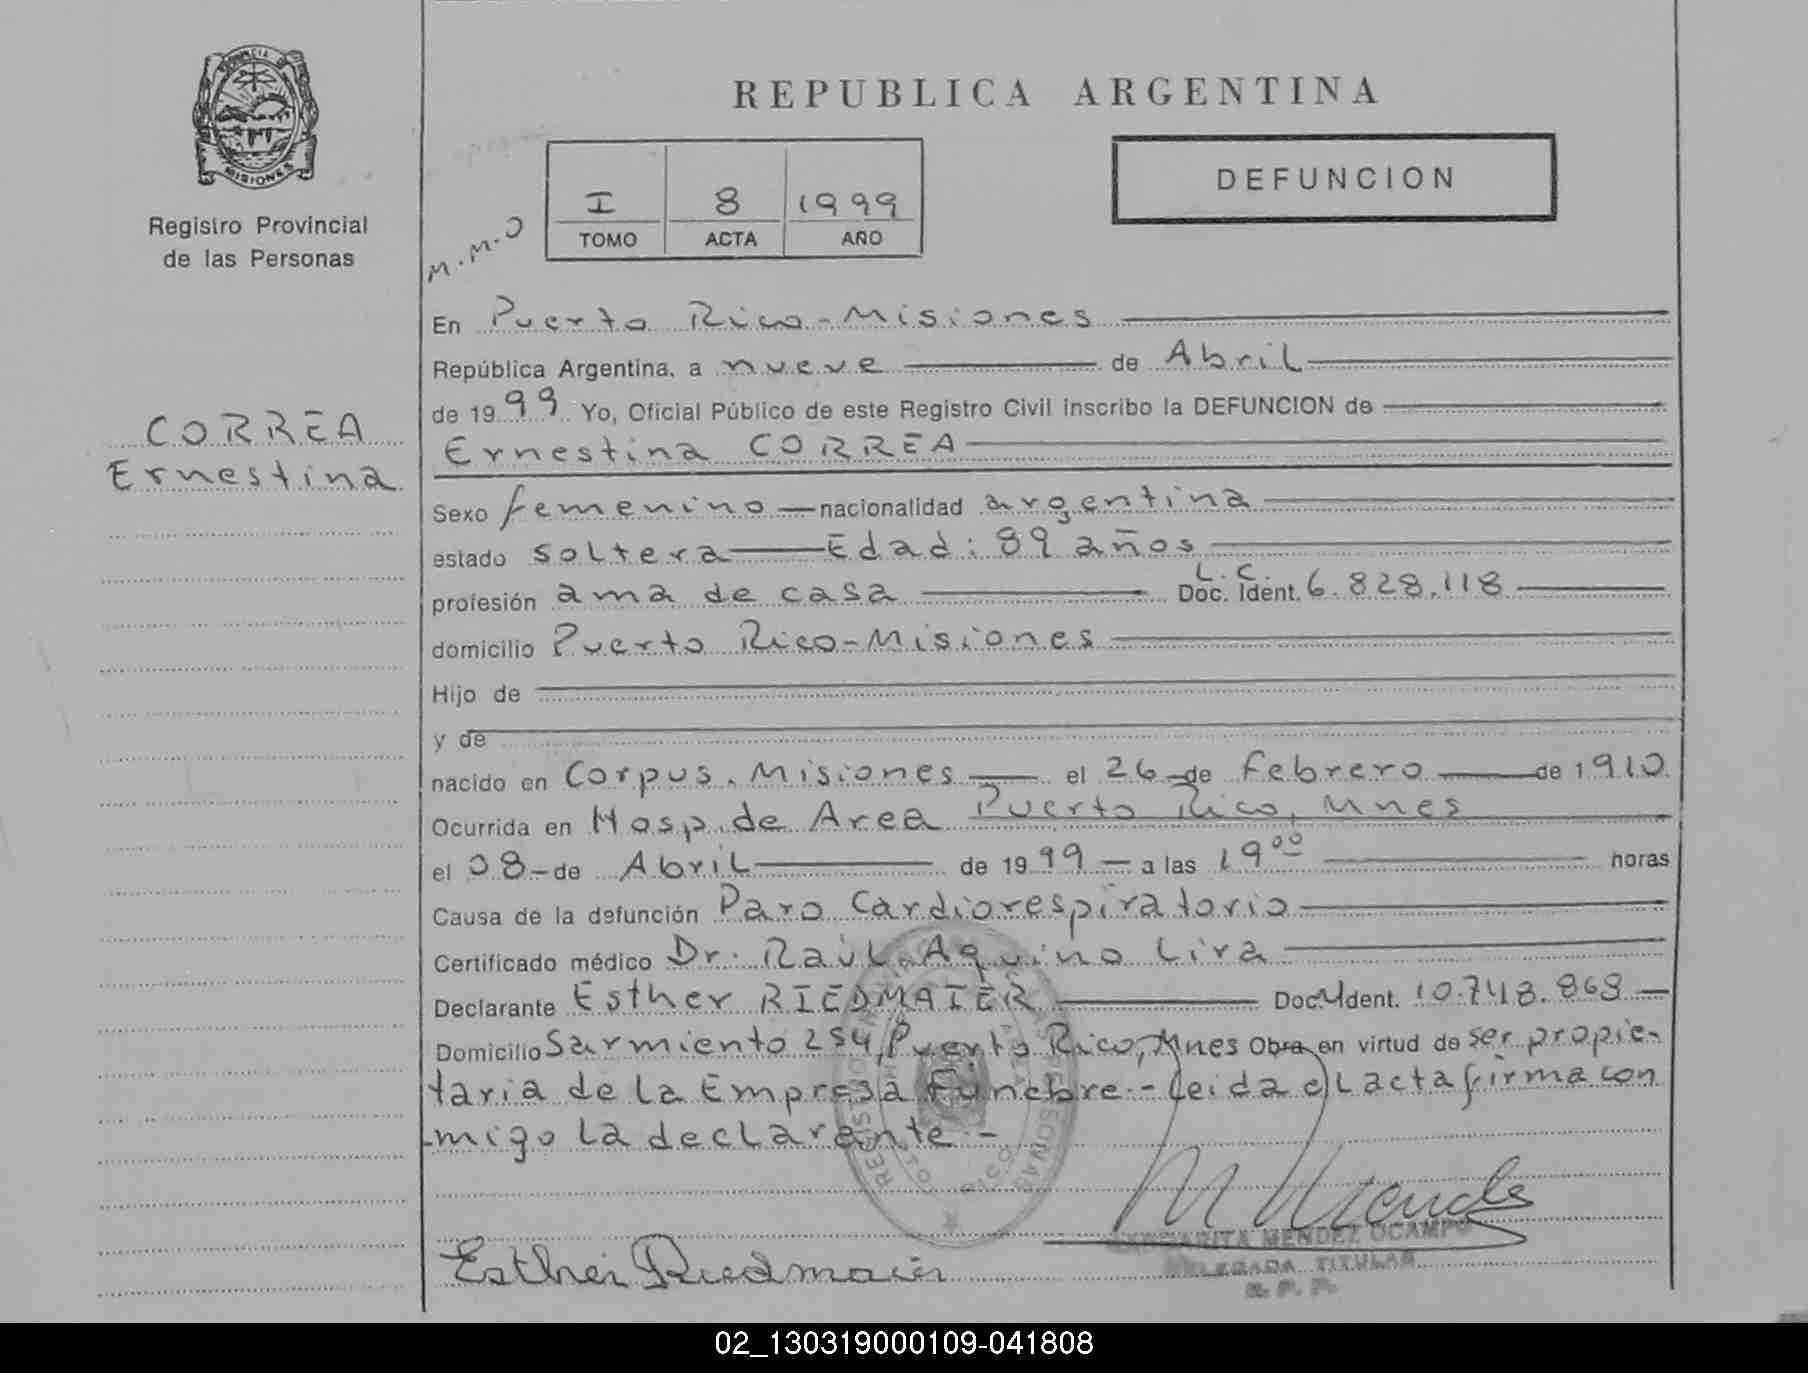 PROVINCIA DE
MISIONES
Registro Provincial
de las Personas
CORREA
Ernestina
REPUBLICA ARGENTINA
I 8 1999
TOMO ACTA AÑO
DEFUNCION
M.M.O
En Puerto Rico - Misiones
República Argentina, a nueve de Abril
de 1999 Yo, Oficial Público de este Registro Civil inscribo la DEFUNCION de
Ernestina CORREA
Sexo femenino nacionalidad argentina
estado soltera Edad: 89 años
profesión ama de casa Doc. Ident. L.C. 6.828.118
domicilio Puerto Rico - Misiones
Hijo de
y de
nacido en Corpus. Misiones el 26 de febrero de 1910
Ocurrida en Hosp. de Area Puerto Rico, Mnes
el 08 de Abril de 1999 a las 19 00 horas
Causa de la defunción Paro Cardiorespiratorio
Certificado médico Dr. Raúl Aquino Lira
Declarante Esther RIEDMAIER Doc. Ident. 10.748.868
Domicilio Sarmiento 254, Puerto Rico, Mnes Obra en virtud de ser propie-
taria de la Empresa Fúnebre.- Leida el acta firma con
migo la declarante.-
Esther Riedmaier
MARGARITA MENDEZ OCAMPO
DELEGADA TITULAR
R. P. P.
02_130319000109-041808